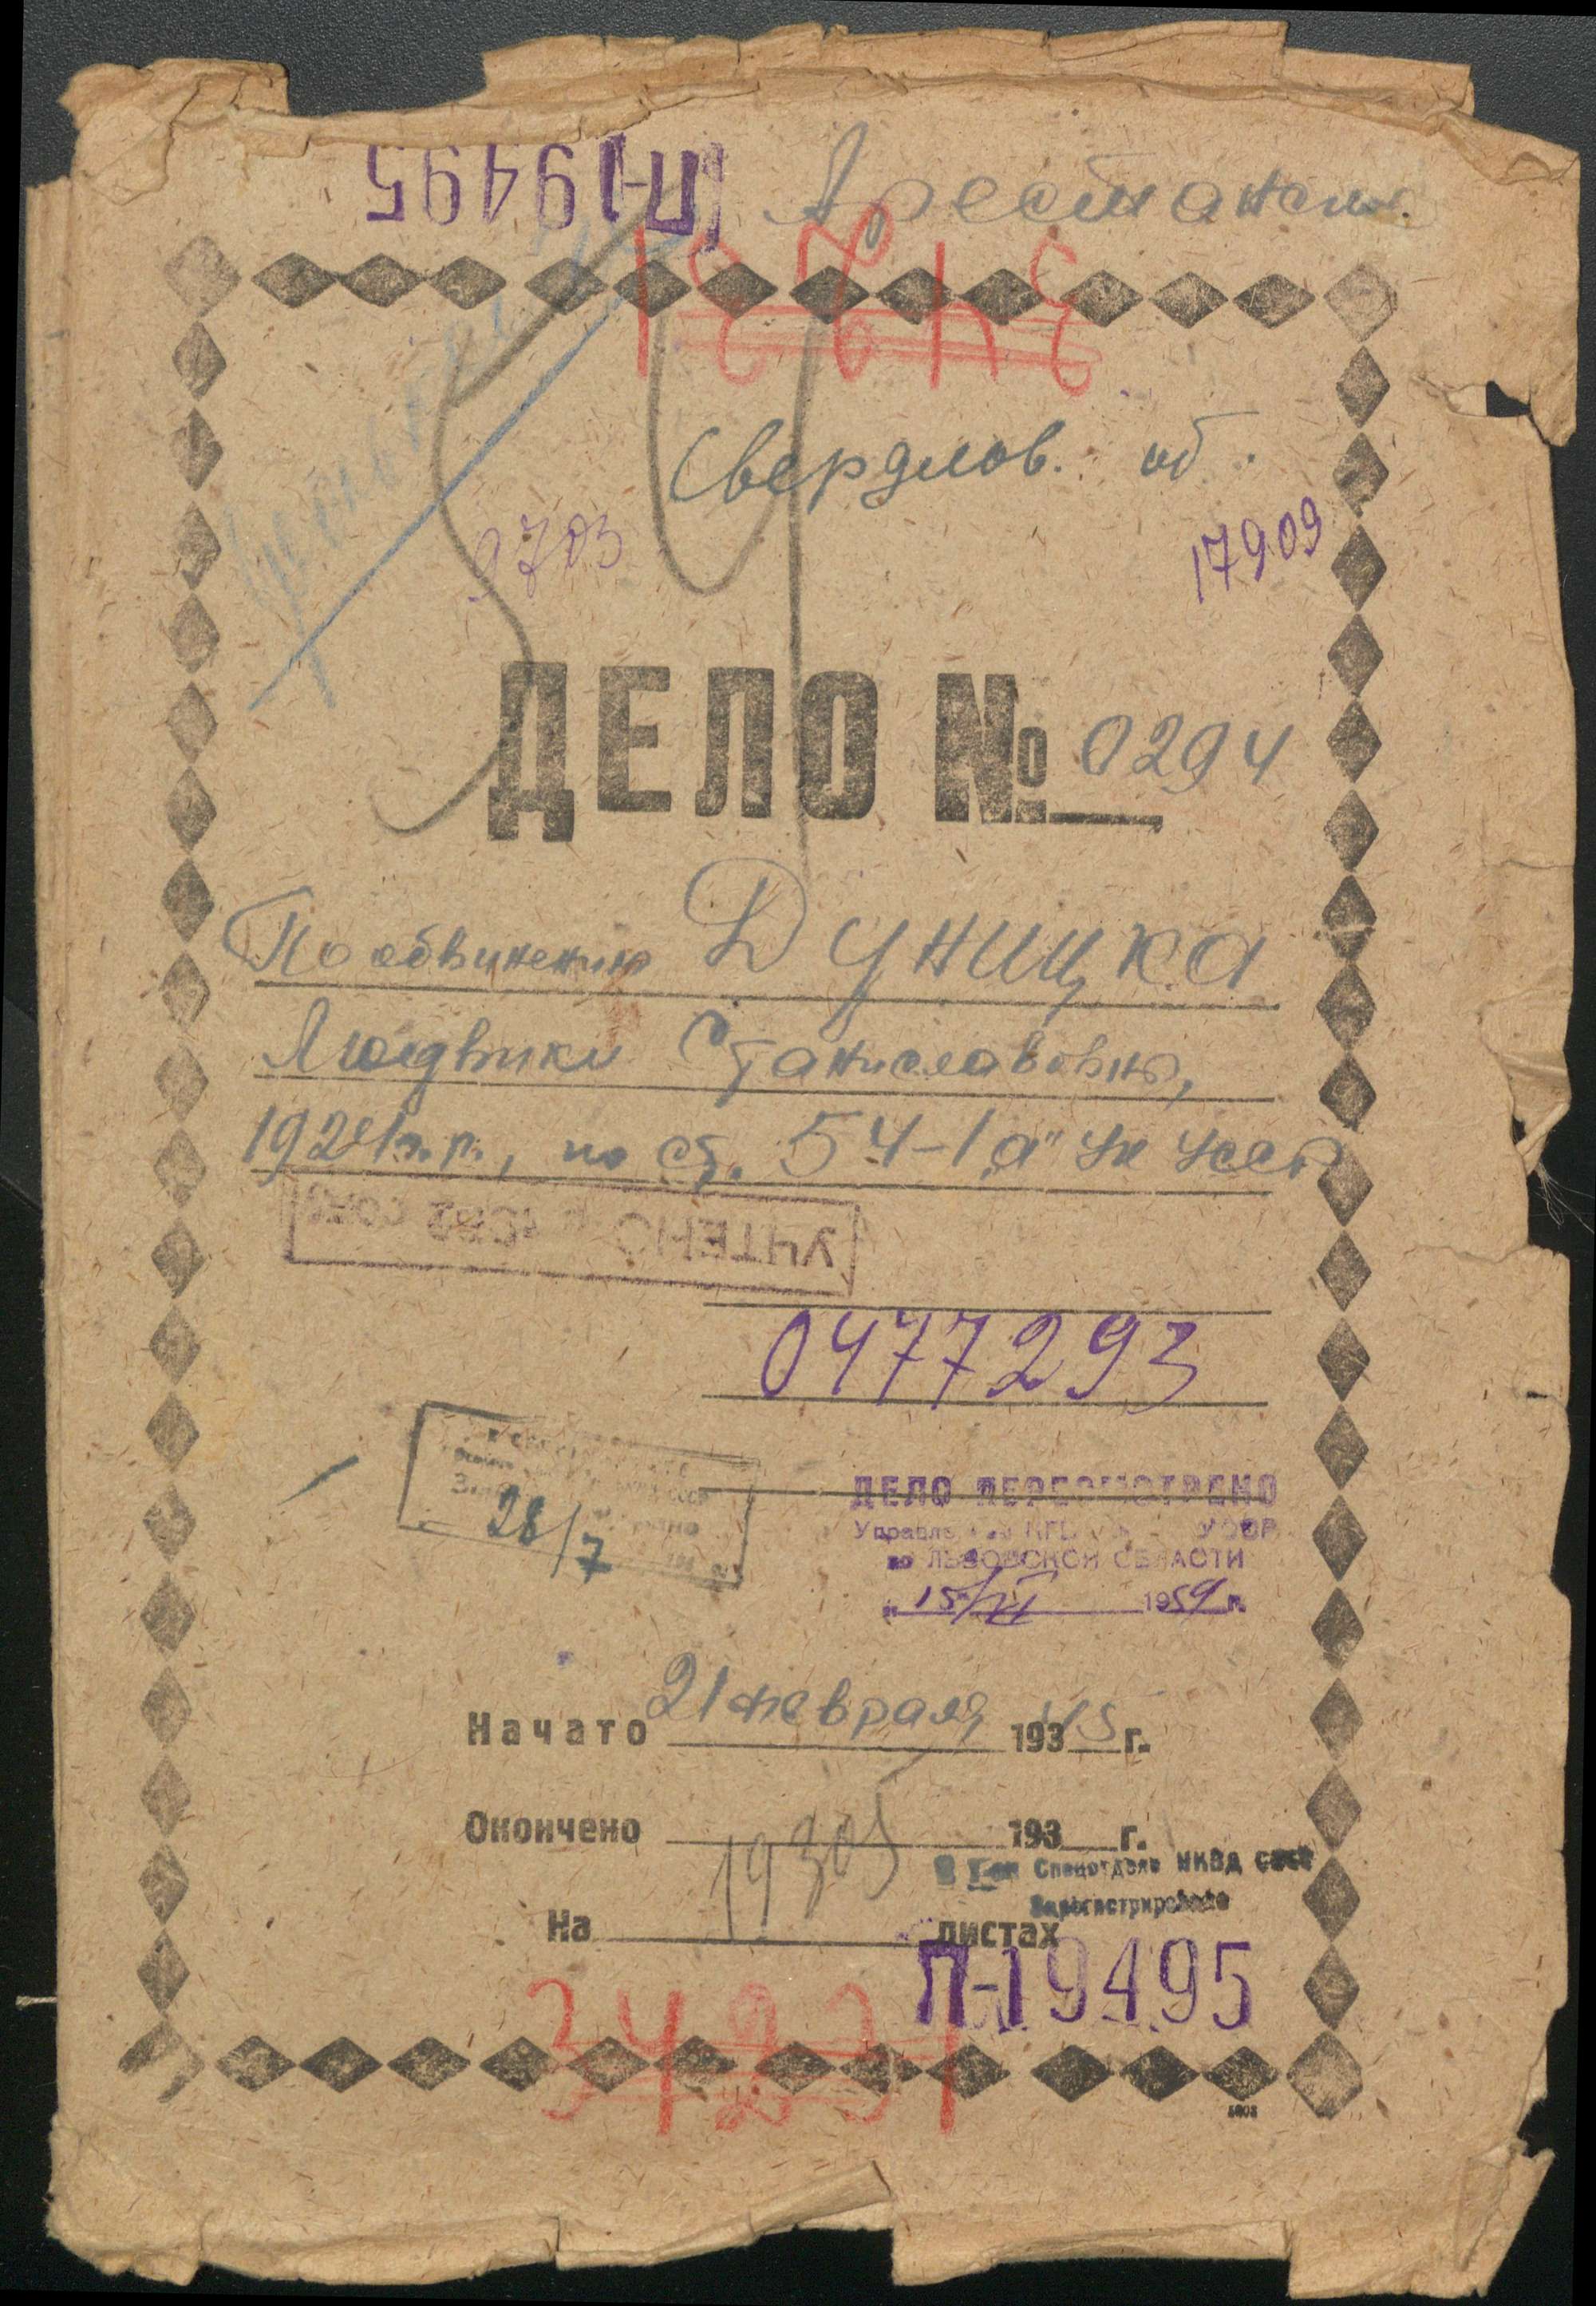 П-19495
Арестантск.
34231
Свердлов. об.
9703
17909
ДЕЛО № 0294
По обвинению Дуницка
Людвики Станиславовны,
1924 г.р., по ст. 54-1"а" УК УССР
УЧТЕНО в 1952
0477293
28/7
ДЕЛО ПЕРЕСМОТРЕНО
по ЛЬВОВСКОЙ ОБЛАСТИ
"15/VI 1959 г.
Начато 21 февраля 193 45 г.
Окончено 193 г.
19305
Спецотдела НКВД СССР
Зарегистрировано
На листах
П-19495
34231